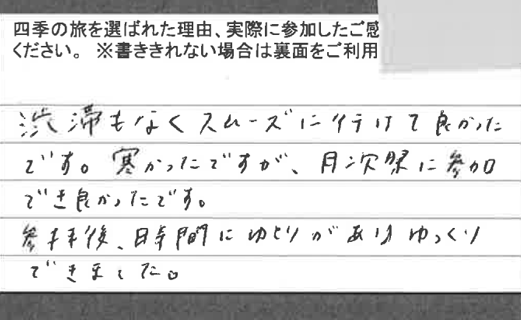 四季の旅を選ばれた理由、実際に参加したご感
ください。 ※書ききれない場合は裏面をご利用
渋滞もなくスムーズに行けて良かった
です。寒かったですが、月次祭に参加
でき良かったです。
参拝後、時間にゆとりがありゆっくり
できました。